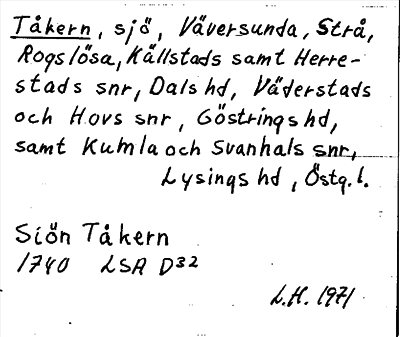 Tåkern, sjö, Väversunda, Strå,
Rogslösa, Källstads samt Herre-
stads snr, Dals hd, Väderstads
och Hovs snr, Göstrings hd,
samt Kumla och Svanhals snr,
Lysings hd, Östg. l.
Siön Tåkern
1740 LSA D32
L.H. 1971